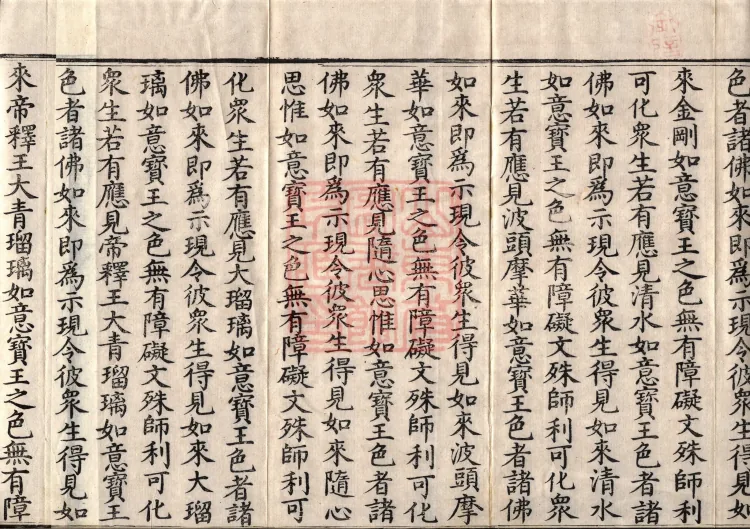 色者諸佛如來即為示現令彼眾生得見如
來金剛如意寶王之色無有障礙文殊師利
可化眾生若有應見清水如意寶王色者諸
佛如來即為示現令彼眾生得見如來清水
如意寶王之色無有障礙文殊師利可化眾
生若有應見波頭摩華如意寶王色者諸佛
如來即為示現令彼眾生得見如來波頭摩
華如意寶王之色無有障礙文殊師利可化
眾生若有應見隨心思惟如意寶王色者諸
佛如來即為示現令彼眾生得見如來隨心
思惟如意寶王之色無有障礙文殊師利可
化眾生若有應見大瑠璃如意寶王色者諸
佛如來即為示現令彼眾生得見如來大瑠
璃如意寶王之色無有障礙文殊師利可化
眾生若有應見帝釋王大青瑠璃如意寶王
色者諸佛如來即為示現令彼眾生得見如
來帝釋王大青瑠璃如意寶王之色無有障